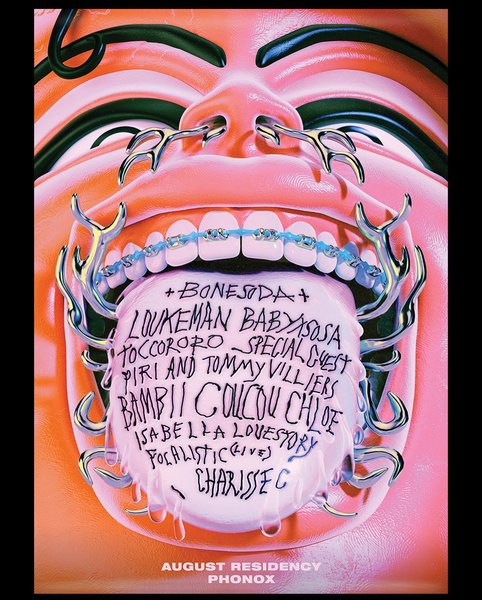 +BONESODA+
LOUKEMAN BABYSOSA
TOCCORORO SPECIAL GUEST
PIRI AND TOMMY VILLIERS
BAMBII COUCOU CHLOE
ISABELLA LOVESTORY
FOCALISTIC (LIVE)
CHARISSE C
AUGUST RESIDENCY
PHONOX